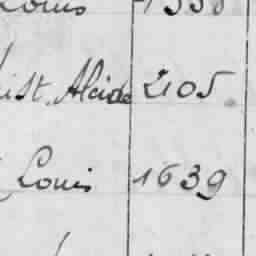 Louis 1338
ist. Alcide 2105
Louis 1639